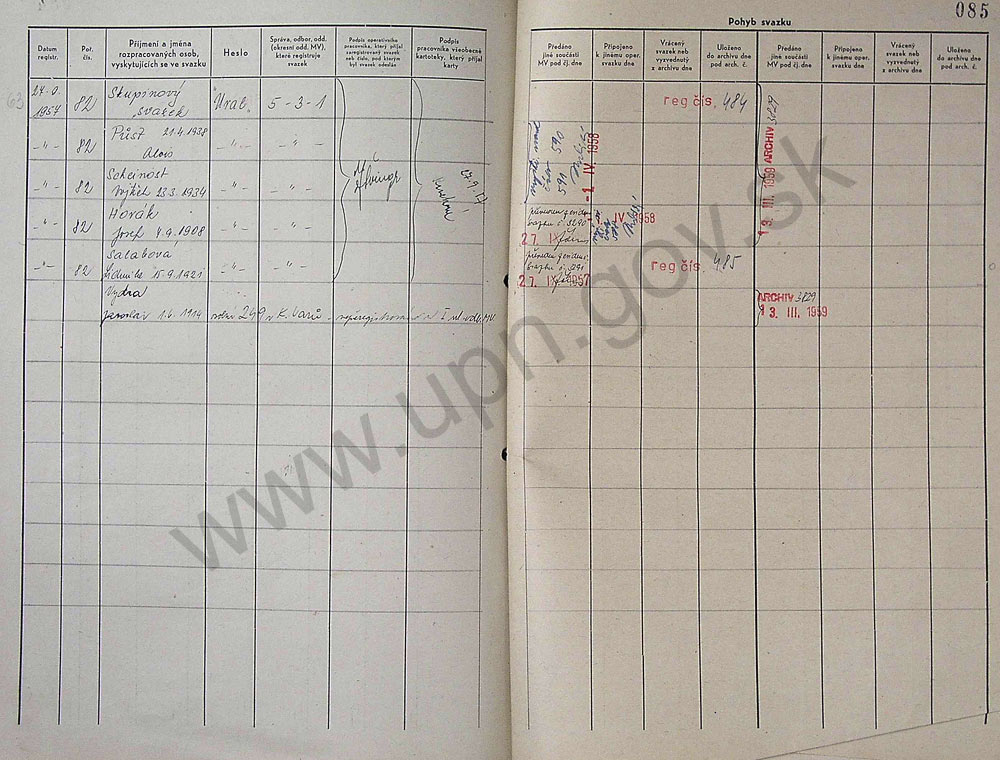 085
Pohyb svazku
Datum registr.
Poř. čís.
Příjmení a jména rozpracovaných osob, vyskytujících se ve svazku
Heslo
Správa, odbor, odd. (okresní odd. MV), které registruje svazek
Podpis operativního pracovníka, který přijal zaregistrovaný svazek neb číslo, pod kterým byl svazek odeslán
Podpis pracovníka všeobecné kartoteky, který přijal karty
Předáno jiné součásti MV pod čj. dne
Připojeno k jinému oper. svazku dne
Vrácený svazek neb vyzvednutý z archivu dne
Uloženo do archivu dne pod arch. č.
Předáno jiné součásti MV pod čj. dne
Připojeno k jinému oper. svazku dne
Vrácený svazek neb vyzvednutý z archivu dne
Uloženo do archivu dne pod arch. č.
63
1957 82 Skupinový svazek Ural 5-3-1
reg čís. 484
ARCHIV 3829
13. III. 1959
-"- 82 Půst 21.4.1938 Alois -"- -"-
590
591
-1. IV. 1958
-"- 82 Scheinost Vojtěch 23.3.1934 -"- -"-
-"- 82 Horák Josef 4.9.1908 -"- -"-
27. IX.
-1. IV 1958
-"- 82 Salabová Ludmila 15.9.1921 -"- -"-
27. IX. 1957
reg čís. 485
Vydra
Jaroslav 1.6.1914 249 K. Varů
ARCHIV 3829
13. III. 1959
www.upn.gov.sk